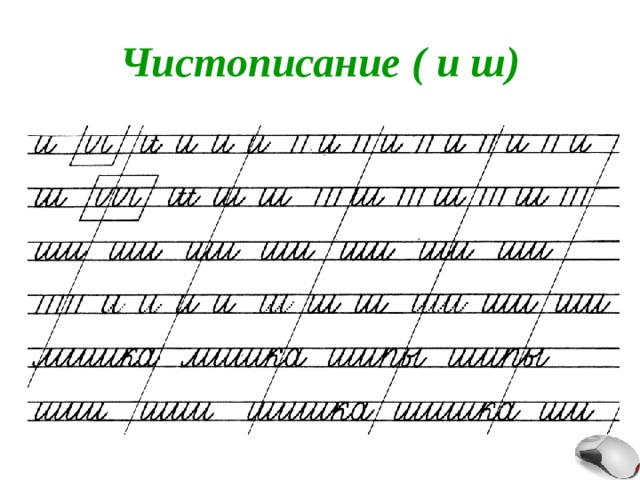 Чистописание ( и ш)
и и и и и и и и и и
ш ш ш ш ш ш
ши ши ши ши ши ши ши
и и и и ш ш ш ши ши ши
мишка мишка шипы шипы
шишка шишка ши